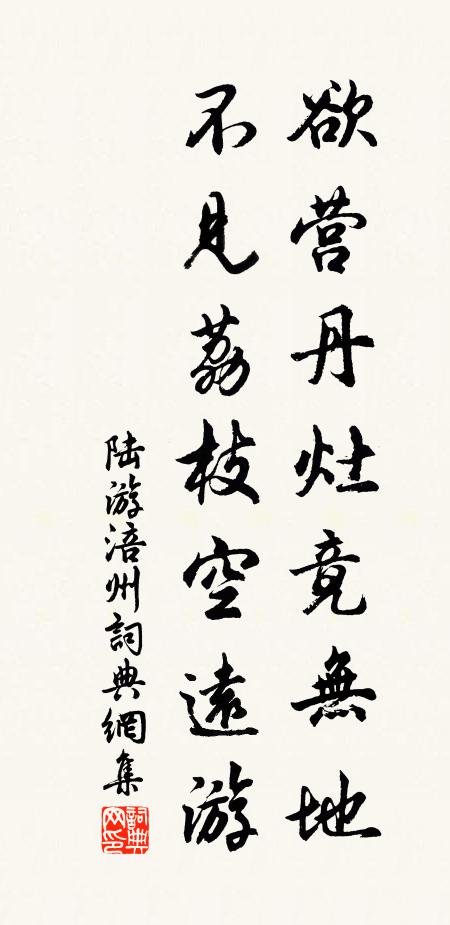 欲营丹灶竟無地
不见荔枝空遠游
陆游涪州詞典網集
詞典网印